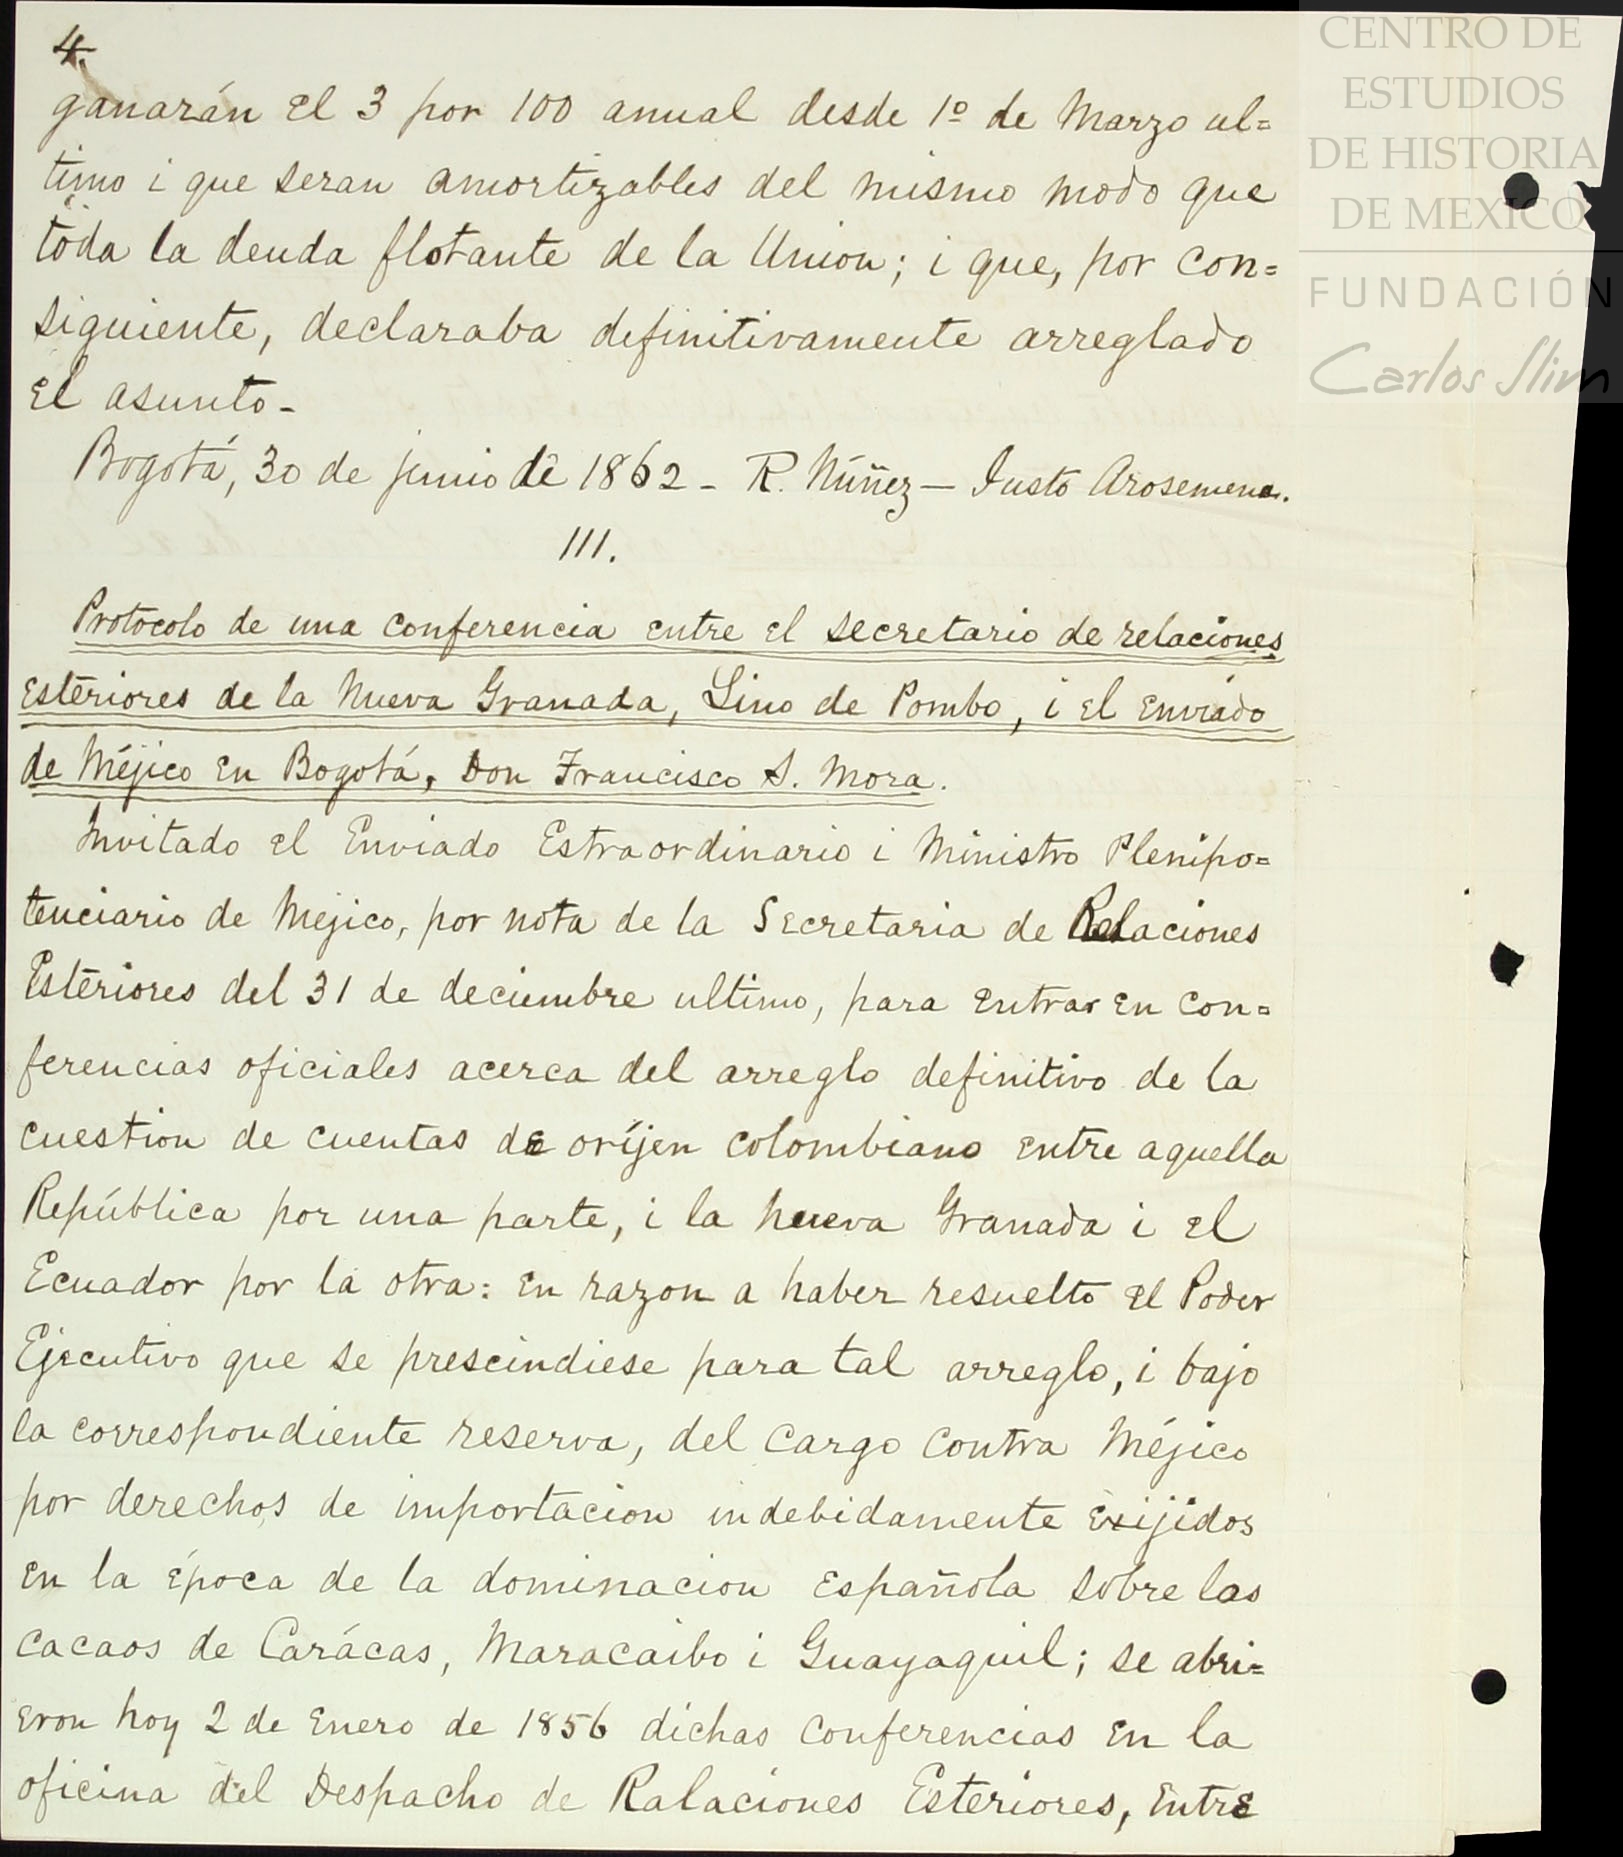 4.
ganarán el 3 por 100 anual desde 1º de Marzo ul=
timo i que seran amortizables del mismo modo que
toda la deuda flotante de la Union; i que, por con=
siguiente, declaraba definitivamente arreglado
el asunto-
Bogotá, 30 de junio de 1862 - R. Núñez - Justo Arosemena.
III.
Protocolo de una conferencia entre el secretario de relaciones
esteriores de la Nueva Granada, Lino de Pombo, i el enviado
de Méjico en Bogotá, Don Francisco S. Mora.
Invitado el Enviado Estraordinario i Ministro Plenipo=
tenciario de Mejico, por nota de la Secretaria de Relaciones
Esteriores del 31 de deciembre ultimo, para entrar en con=
ferencias oficiales acerca del arreglo definitivo de la
cuestion de cuentas de oríjen colombiano entre aquella
República por una parte, i la Nueva Granada i el
Ecuador por la otra: en razon a haber resuelto el Poder
Ejecutivo que se prescindiese para tal arreglo, i bajo
la correspondiente reserva, del cargo contra Méjico
por derechos de importacion indebidamente exijidos
en la época de la dominacion española sobre los
cacaos de Carácas, Maracaibo i Guayaquil; se abri=
eron hoy 2 de Enero de 1856 dichas conferencias en la
oficina del Despacho de Ralaciones Esteriores, entre
CENTRO DE
ESTUDIOS
DE HISTORIA
DE MEXICO
FUNDACIÓN
Carlos Slim